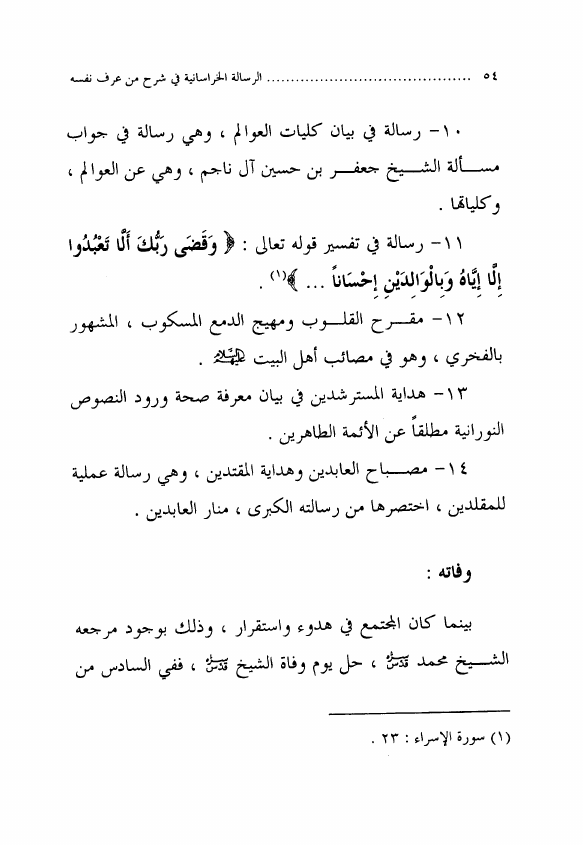 ٥٤ ........................................... الرسالة الخراسانية في شرح من عرف نفسه
١٠- رسالة في بيان كليات العوالم ، وهي رسالة في جواب
مسـألة الشـيخ جعفـر بن حسين آل ناجم ، وهي عن العوالم ،
وكلياتها .
١١- رسالة في تفسير قوله تعالى : ﴿ وَقَضَى رَبُّكَ أَلَّا تَعْبُدُوا
إِلَّا إِيَّاهُ وَبِالْوَالِدَيْنِ إِحْسَاناً ... ﴾(١) .
١٢- مقـرح القلـوب ومهيج الدمع المسكوب ، المشهور
بالفخري ، وهو في مصائب أهل البيت عليهم السلام .
١٣- هداية المسترشدين في بيان معرفة صحة ورود النصوص
النورانية مطلقاً عن الأئمة الطاهرين .
١٤- مصـباح العابدين وهداية المقتدين ، وهي رسالة عملية
للمقلدين ، اختصرها من رسالته الكبرى ، منار العابدين .
وفاته :
بينما كان المجتمع في هدوء واستقرار ، وذلك بوجود مرجعه
الشـيخ محمد قدس سره ، حل يوم وفاة الشيخ قدس سره ، ففي السادس من
(١) سورة الإسراء : ٢٣ .